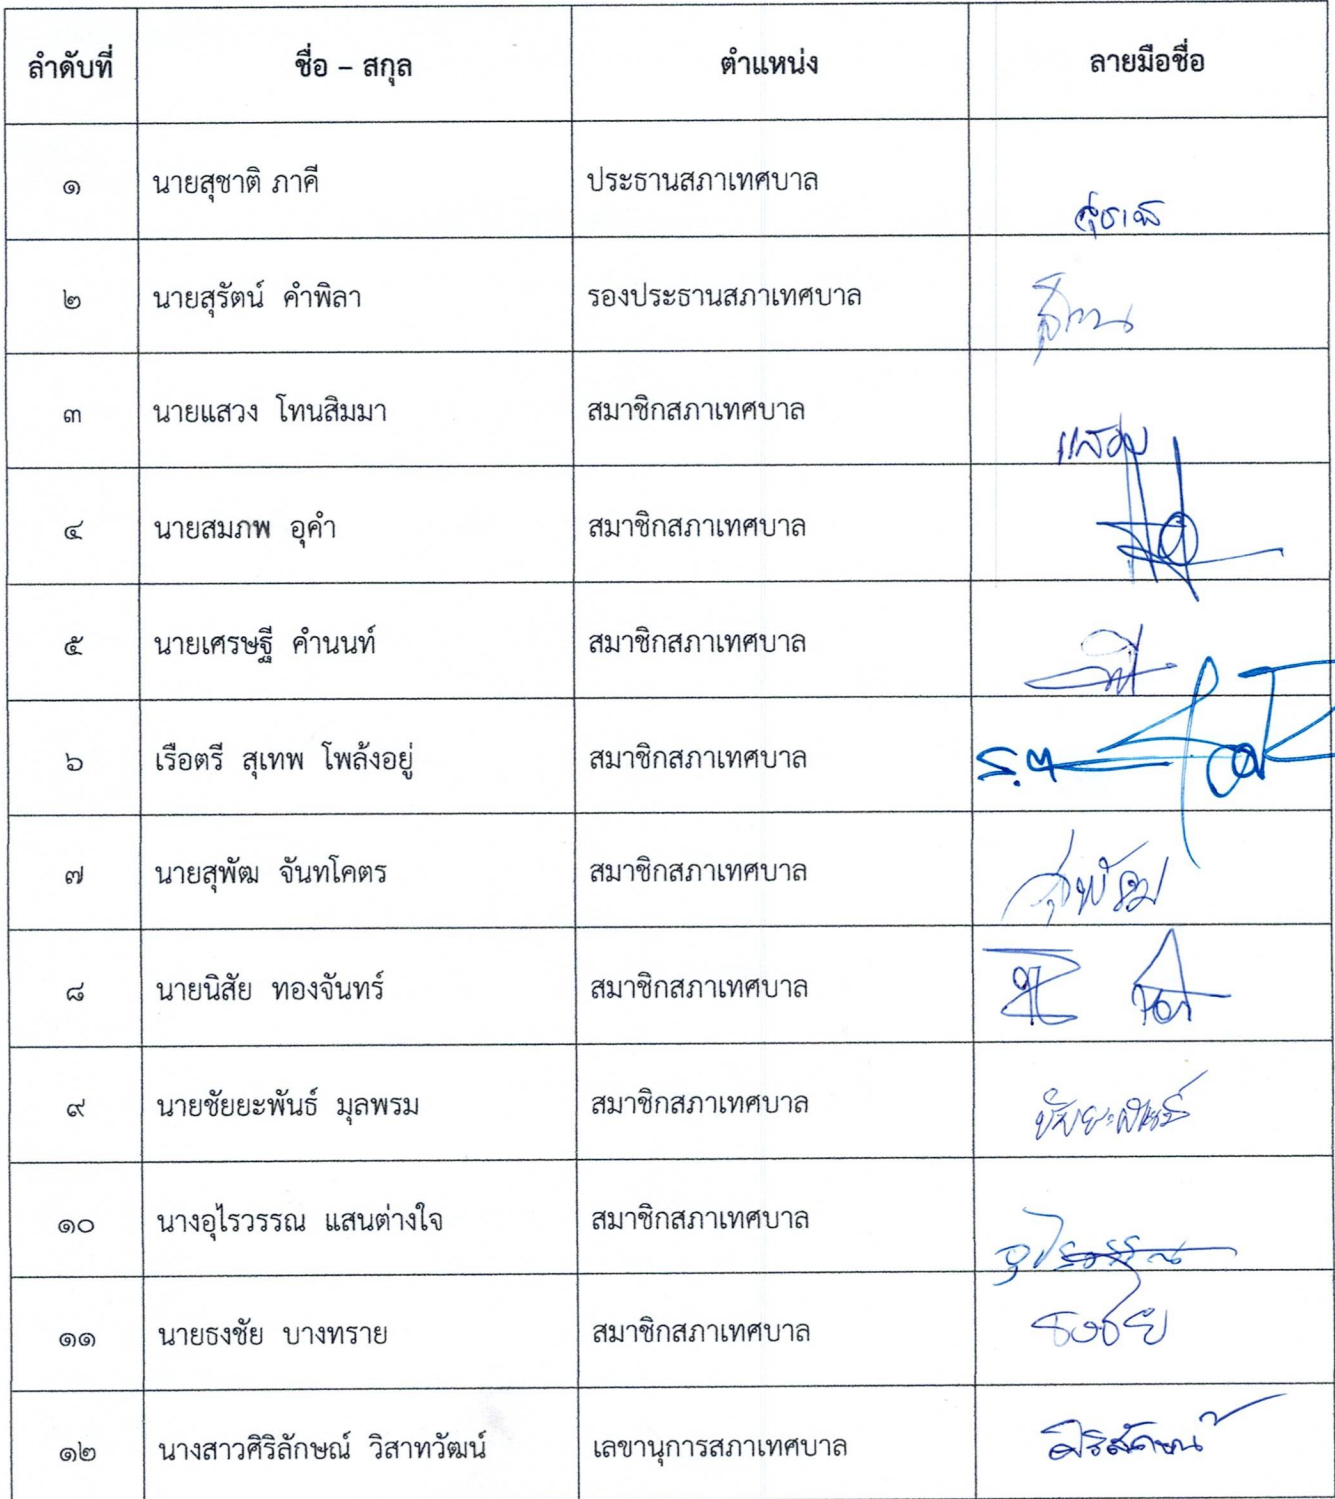 ลำดับที่ ชื่อ – สกุล ตำแหน่ง ลายมือชื่อ
๑ นายสุชาติ ภาคี ประธานสภาเทศบาล สุชาติ
๒ นายสุรัตน์ คำพิลา รองประธานสภาเทศบาล
๓ นายแสวง โทนสิมมา สมาชิกสภาเทศบาล แสวง
๔ นายสมภพ อุคำ สมาชิกสภาเทศบาล
๕ นายเศรษฐี คำนนท์ สมาชิกสภาเทศบาล
๖ เรือตรี สุเทพ โพล้งอยู่ สมาชิกสภาเทศบาล ร.ต.
๗ นายสุพัฒ จันทโคตร สมาชิกสภาเทศบาล สุพัฒ
๘ นายนิสัย ทองจันทร์ สมาชิกสภาเทศบาล
๙ นายชัยยะพันธ์ มุลพรม สมาชิกสภาเทศบาล ชัยยะพันธ์
๑๐ นางอุไรวรรณ แสนต่างใจ สมาชิกสภาเทศบาล อุไรวรรณ
๑๑ นายธงชัย บางทราย สมาชิกสภาเทศบาล ธงชัย
๑๒ นางสาวศิริลักษณ์ วิสาทวัฒน์ เลขานุการสภาเทศบาล ศิริลักษณ์